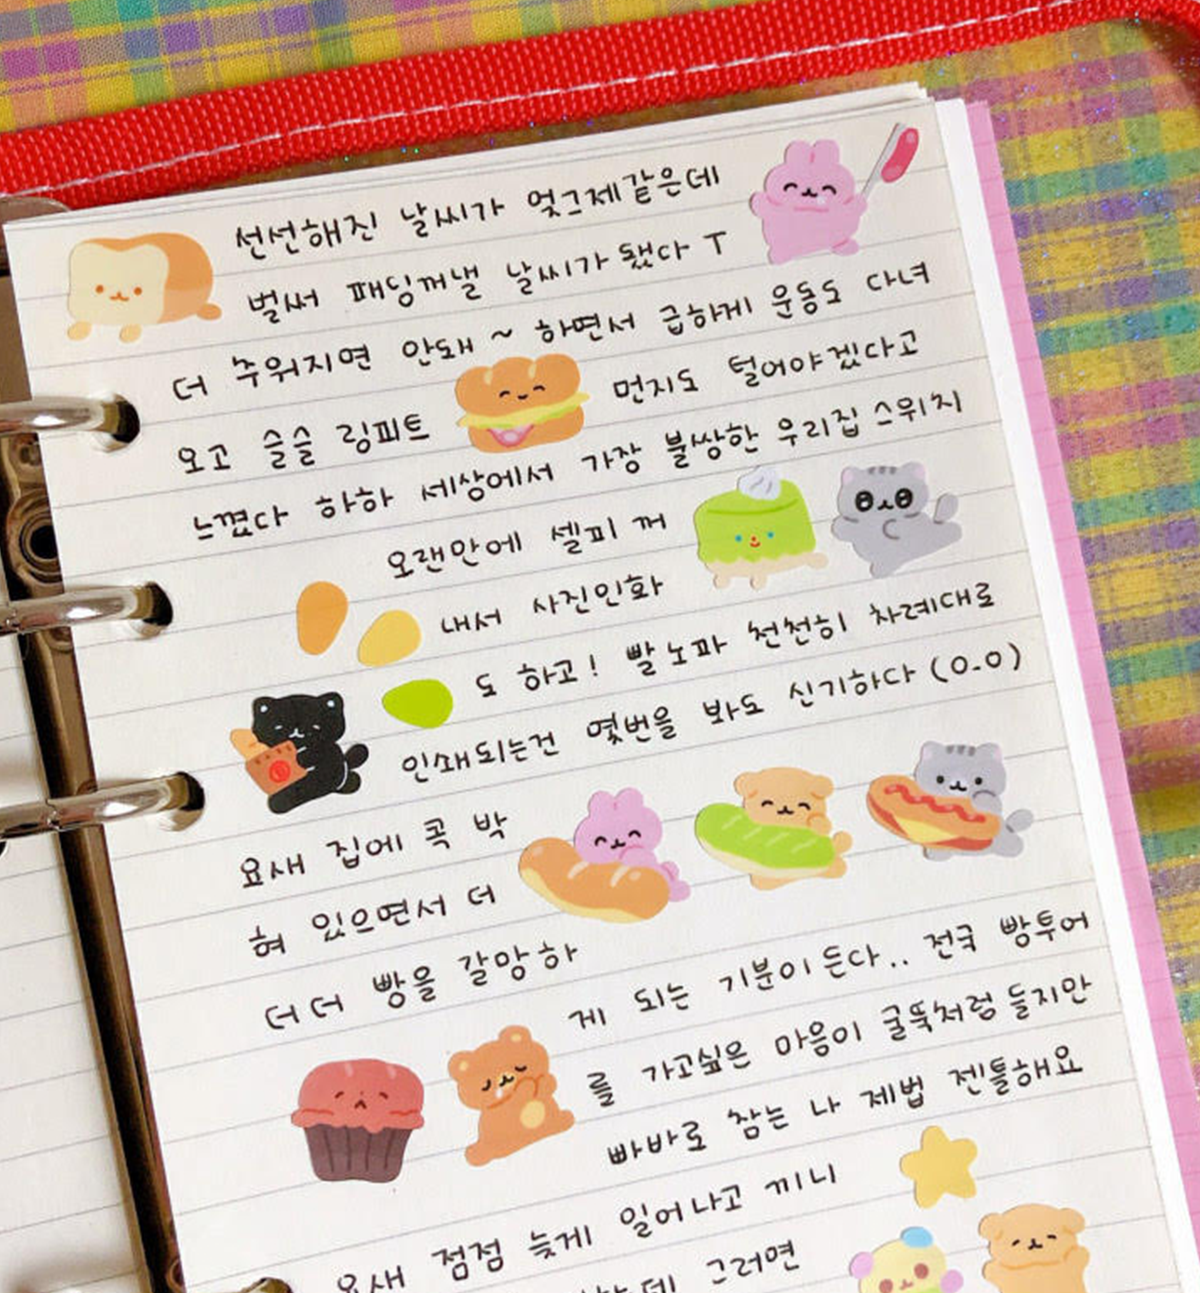 선선해진 날씨가 엊그제같은데
벌써 패딩꺼낼 날씨가 됐다 ㅜ
더 추워지면 안돼 ~ 하면서 급하게 운동도 다녀
오고 슬슬 링피트 먼지도 털어야겠다고
느꼈다 하하 세상에서 가장 불쌍한 우리집 스위치
오랜만에 셀피 꺼
내서 사진인화
도 하고! 빨노파 천천히 차례대로
인쇄되는건 몇번을 봐도 신기하다 (O_O)
요새 집에 콕 박
혀 있으면서 더
더더 빵을 갈망하
게 되는 기분이 든다.. 전국 빵투어
를 가고싶은 마음이 굴뚝처럼 들지만
빠바로 참는 나 제법 젠틀해요
요새 점점 늦게 일어나고 끼니
그러면